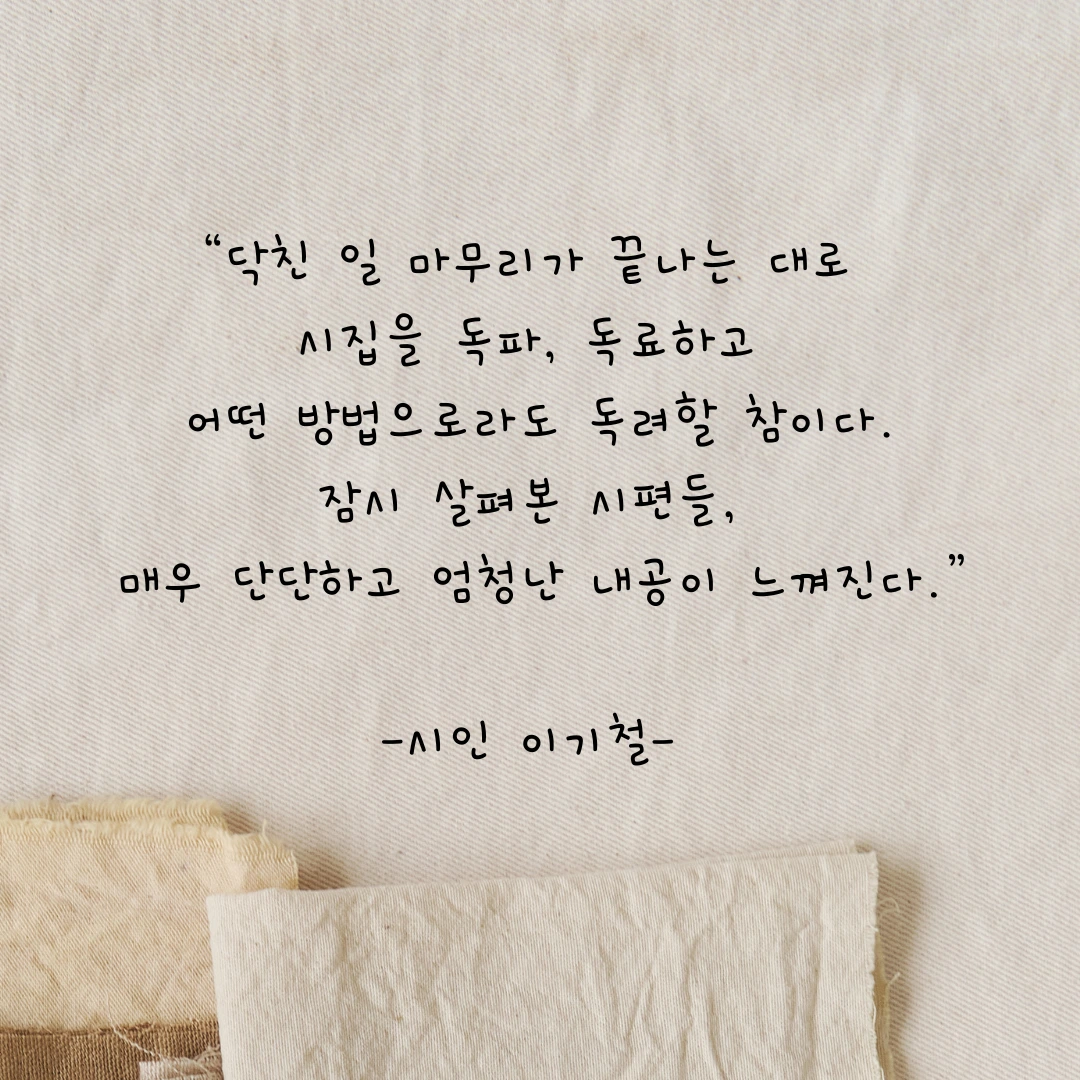 “닥친 일 마무리가 끝나는 대로
시집을 독파, 독료하고
어떤 방법으로라도 독려할 참이다.
잠시 살펴본 시편들,
매우 단단하고 엄청난 내공이 느껴진다.”
-시인 이기철-